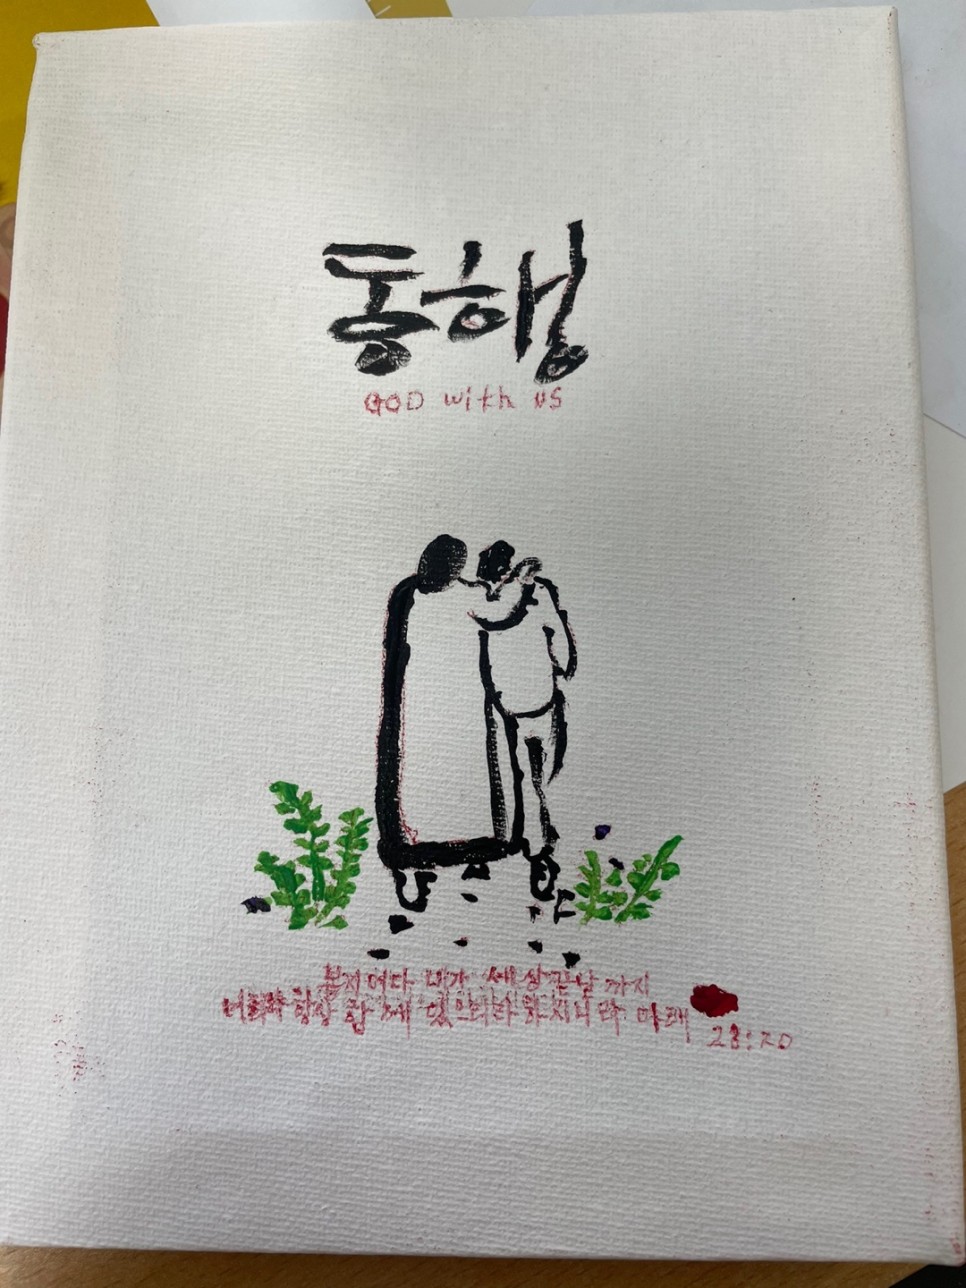 동행
GOD with US
볼지어다 내가 세상 끝날 까지
너희와 항상 함께 있으리라 하시니라 마태
28:20